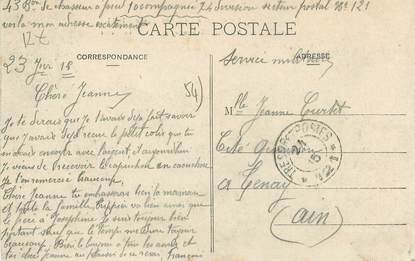 43 Bon de chasseur a pied 10 compagnie 24 division secteur postal No 121
voila mon adresse exactement
CARTE POSTALE
CORRESPONDANCE
ADRESSE
Service militaire
23 Jvr 15
54)
Chère Jeanne
Je te dirais que je t'avais déjà fait savoir
que j'avais déjà reçu le petit colis que tu
envoyer avec l'argent et aujourd'hui
Je viens de recevoir
Je t'en remercie beaucoup
Chère Jeanne tu embrasseras bien la maman
et toute la famille. va bien ainsi que
Joséphine Je suis toujours bien
portant sauf que le temps me dure toujour
beaucoup. Bien le bonjour a tous les amis et
toi chère Jeanne au plaisir de se revoir François
Mlle Jeanne Curtet
Cité
a Genay
(Ain)
TRESOR ET POSTES
24
15